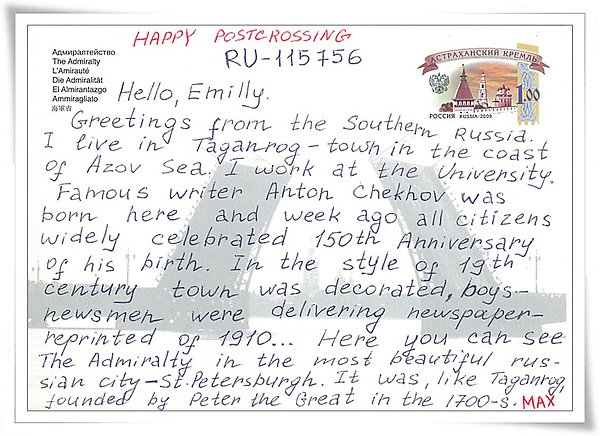 HAPPY POSTCROSSING
RU-115756
Адмиралтейство
The Admiralty
L'Amirauté
Die Admiralität
El Almirantazgo
Ammiragliato
海軍省
АСТРАХАНСКИЙ КРЕМЛЬ
1.00
РОССИЯ RUSSIA·2009
Hello, Emilly.
Greetings from the Southern Russia.
I live in Taganrog - town in the coast
of Azov Sea. I work at the University.
Famous writer Anton Chekhov was
born here and week ago all citizens
widely celebrated 150th Anniversary
of his birth. In the style of 19th
century town was decorated, boys-
newsmen were delivering newspaper-
reprinted of 1910... Here you can see
The Admiralty in the most beautiful rus-
sian city - St.Petersburgh. It was, like Taganrog,
founded by Peter the Great in the 1700-s. MAX